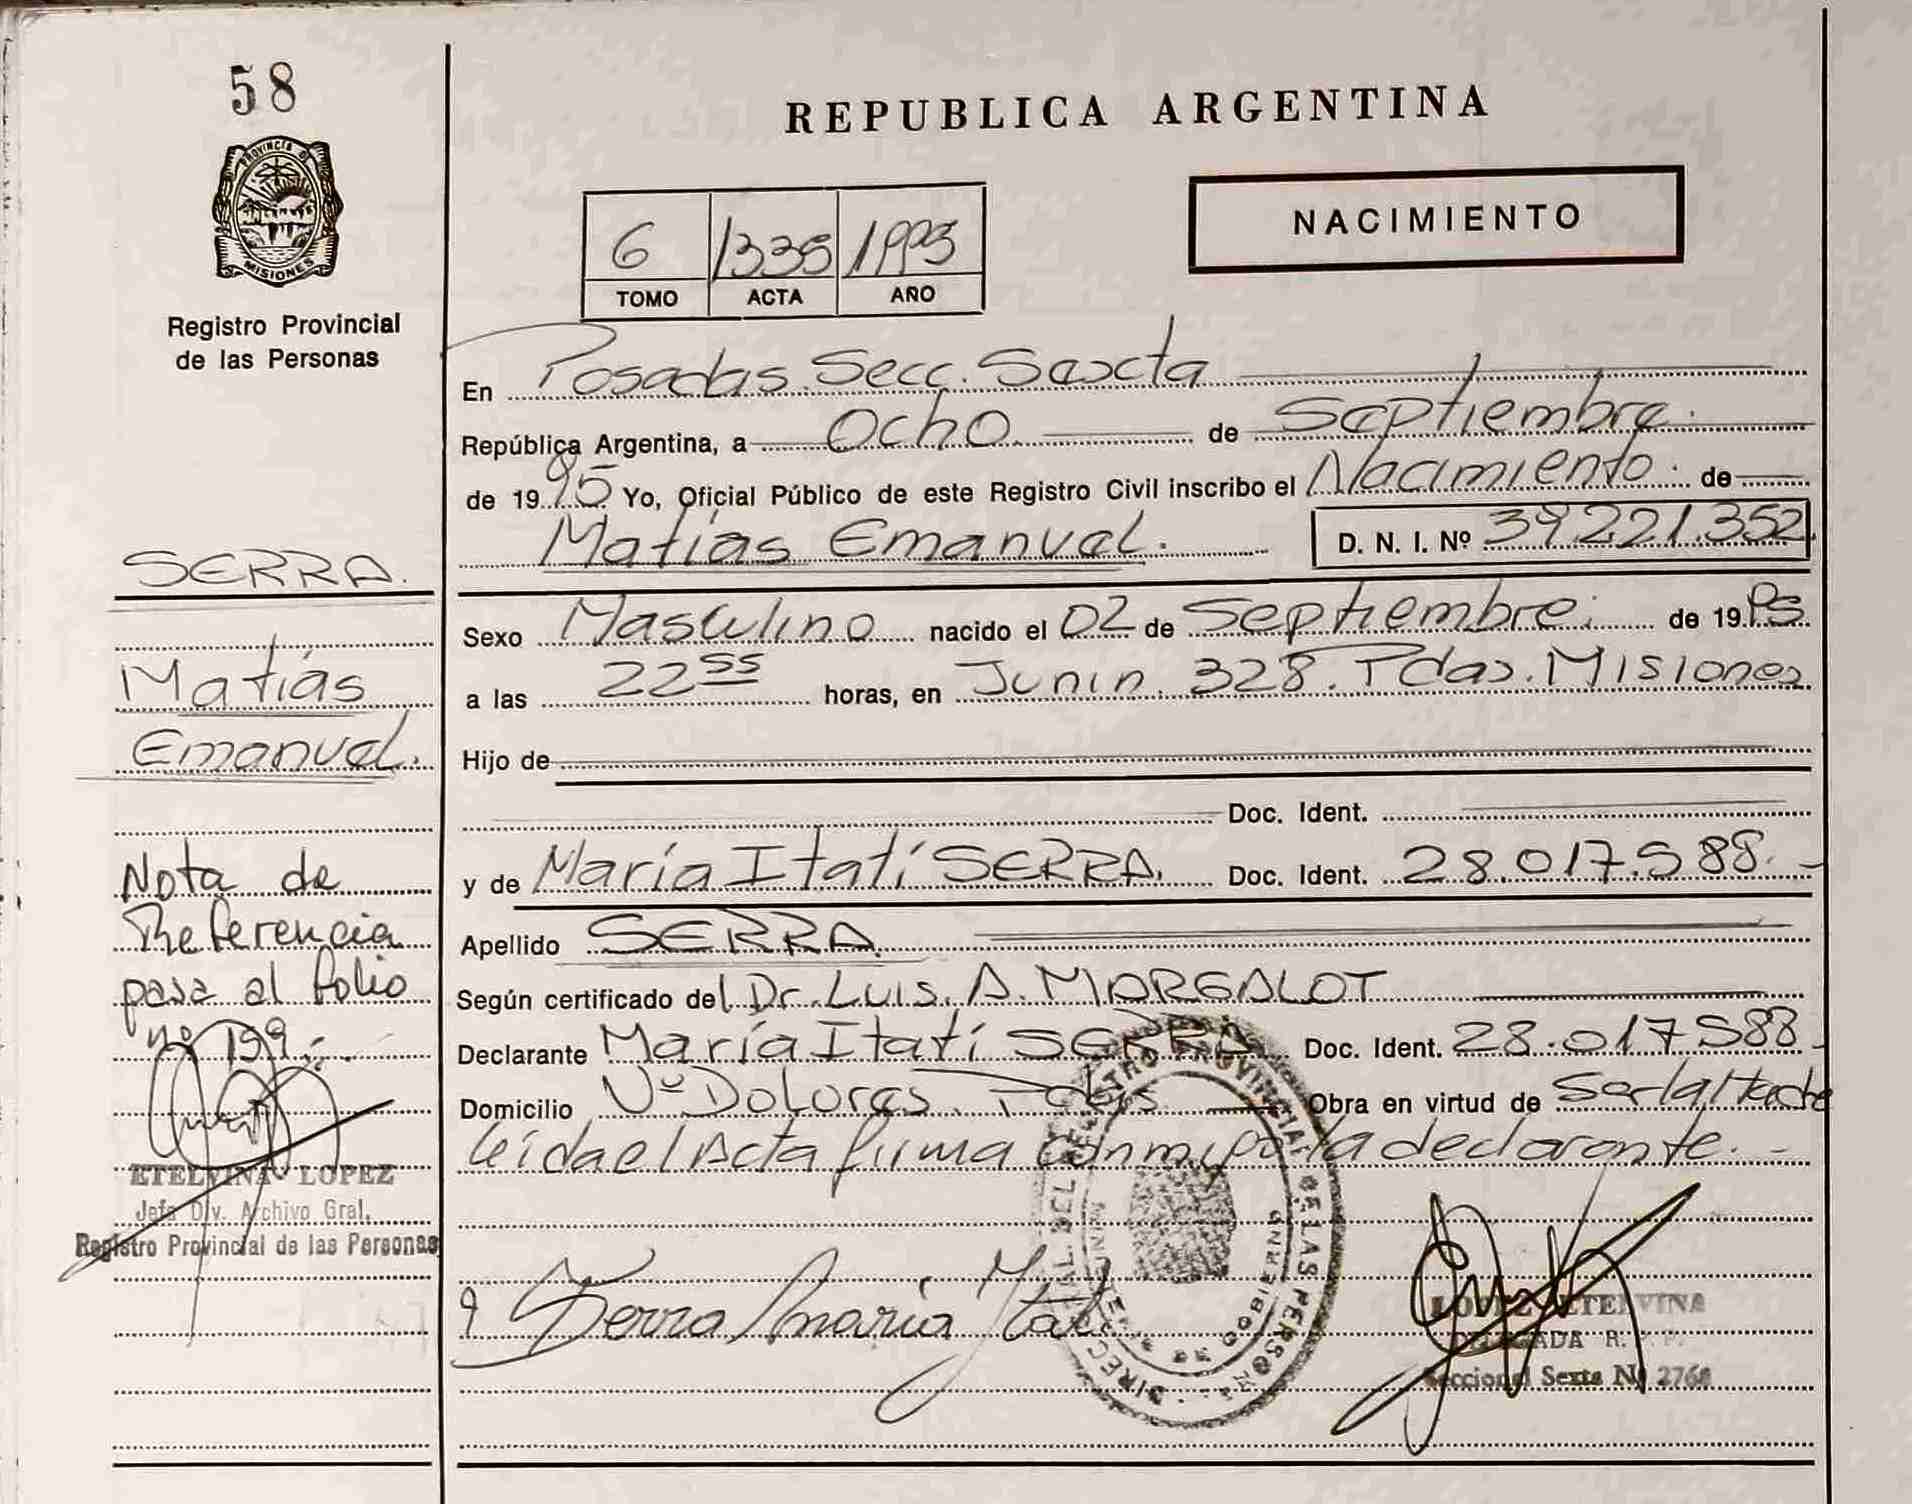 58
PROVINCIA DE
MISIONES
Registro Provincial
de las Personas
REPUBLICA ARGENTINA
NACIMIENTO
6 1335 1995
TOMO ACTA AÑO
En Posadas. Secc. Sexta
República Argentina, a Ocho de Septiembre.
de 1995 Yo, Oficial Público de este Registro Civil inscribo el Nacimiento. de
Matías Emanuel. D. N. I. Nº 39.221.352.
Sexo Masculino nacido el 02 de Septiembre. de 1995.
a las 22 55 horas, en Junin. 328. Pdas. Misiones.
Hijo de
Doc. Ident.
y de María Itatí SERRA. Doc. Ident. 28.017.588.-
Apellido SERRA
Según certificado del Dr. LUIS. A. MORGALOT
Declarante María Itatí SERRA Doc. Ident. 28.017588.
Domicilio Vª DOLORES. Pdas Obra en virtud de Ser la Madre
leida el Acta firma conmigo la declarante.-
Serra maria Itati
SERRA.
Matías
Emanuel.
Nota de
Referencia
pasa al folio
nº 199.-
ETELVINA LOPEZ
Jefa Div. Archivo Gral.
Registro Provincial de las Personas
REGISTRO PROVINCIAL DE LAS PERSONAS
LOPEZ ETELVINA
DELEGADA R.
Seccional Sexta Nº 276